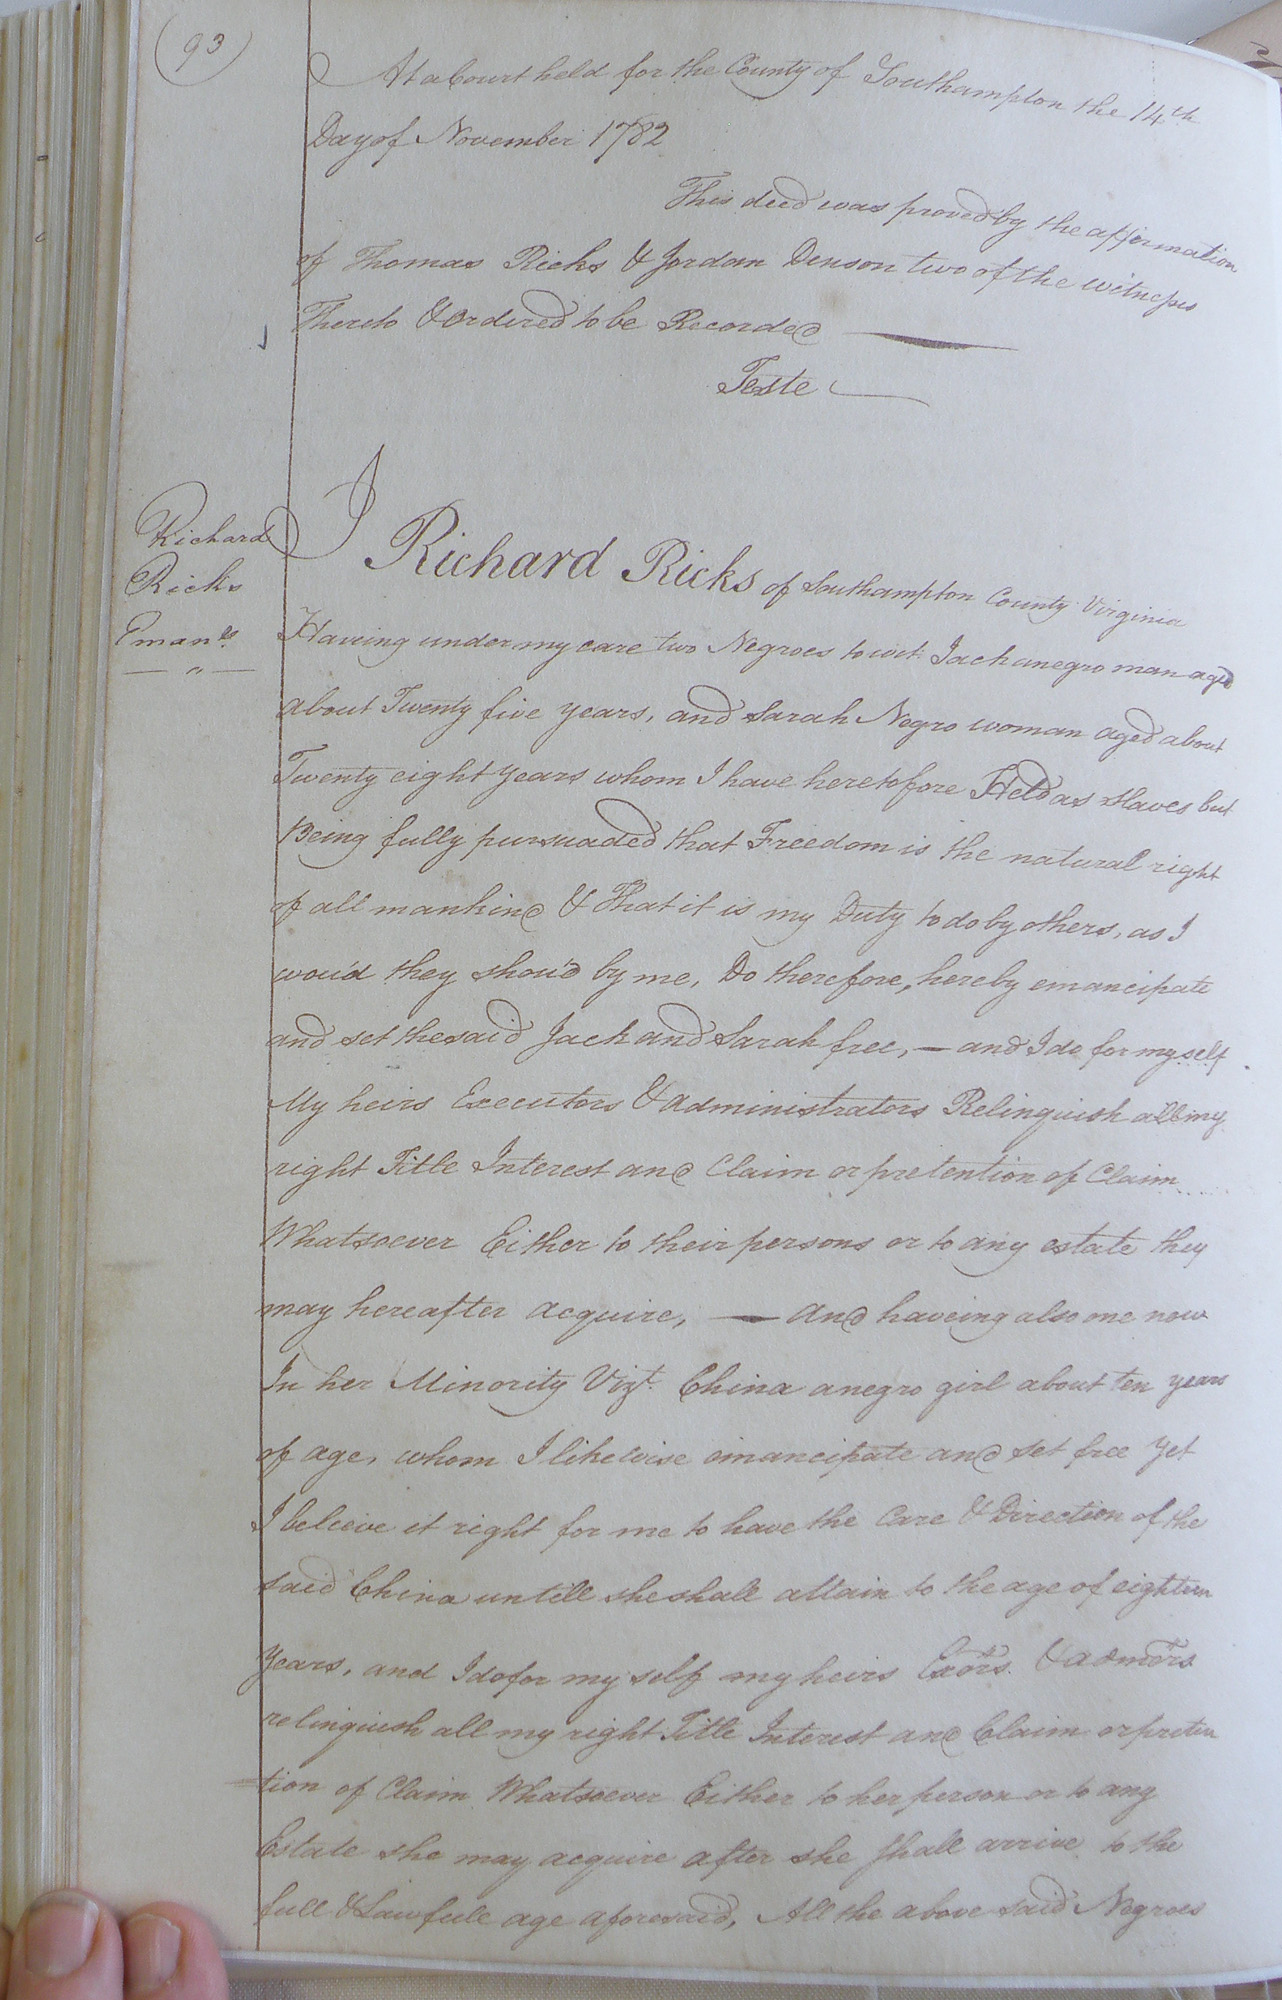 (93)
At a Court held for the County of Southampton the 14th
Day of November 1782
This deed was proved by the affirmation
of Thomas Ricks & Jordan Denson two of the witnesses
Thereto & Ordered to be Recorded
Teste
Richard
Ricks
Emans.
— " —
I Richard Ricks of Southampton County Virginia
Haveing under my care two Negroes to wit Jack a negro man aged
about Twenty five years, and Sarah Negro woman aged about
Twenty eight years whom I have heretofore Held as slaves but
Being fully pursuaded that Freedom is the natural right
of all mankind & That it is my Duty to do by others, as I
wou'd they shou'd by me, Do therefore, hereby emancipate
and set the said Jack and Sarah free, — and I do for my self
My heirs Executors & administrators Relinquish all my
right Title Interest and Claim or pretention of Claim
Whatsoever Either to their persons or to any estate they
may hereafter acquire, — And haveing also one now
In her Minority Vizt. China a negro girl about ten years
of age, whom I likewise emancipate and set free yet
I beleeve it right for me to have the Care & Direction of the
said China untill she shall attain to the age of eighteen
years, and I do for my self my heirs Exors. & admors
relinquish all my right Title Interest and Claim or preten
=tion of Claim Whatsoever Either to her person or to any
Estate she may acquire after she shall arrive to the
full & Lawfull age aforesaid, All the above said Negroes